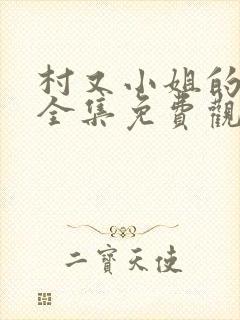 村又小姐的
全集免費觀
二寶天使